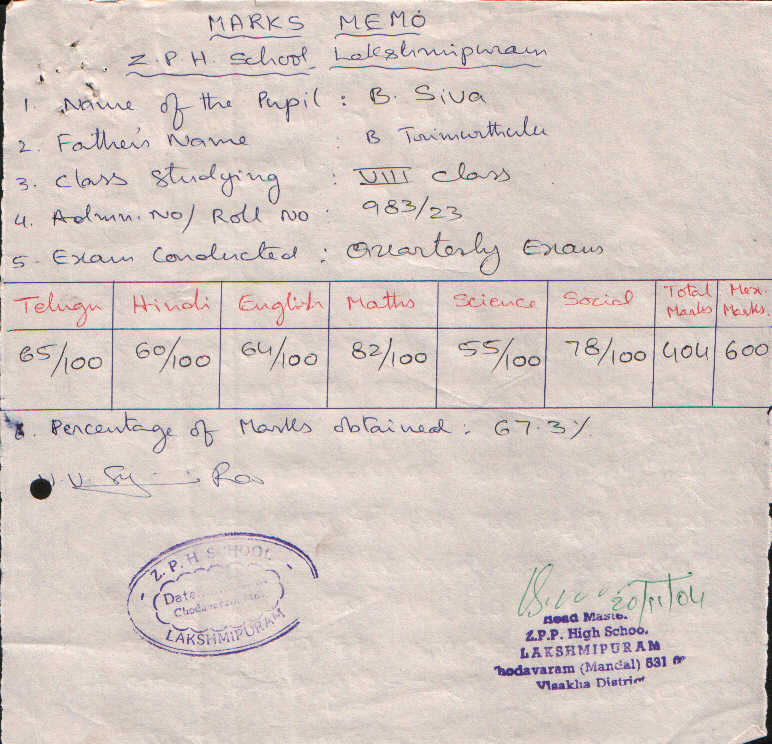 MARKS MEMO
Z.P.H. School Lakshmipuram
1. Name of the Pupil : B. Siva
2. Father's Name : B Trimurthulu
3. Class Studying : VIII Class
4. Admn. No/ Roll No : 983/23
5. Exam Conducted : Quarterly Exams
Telugu Hindi English Maths Science Social Total Marks Max. Marks.
65/100 60/100 64/100 82/100 55/100 78/100 404 600
6. Percentage of Marks obtained : 67.3%.
Rao
Z.P.H SCHOOL
Date
LAKSHMIPURAM
20/11/04
Head Maste.
Z.P.P. High Schoo.
LAKSHMIPURAM
hodavaram (Mandal) 531
Visakha District